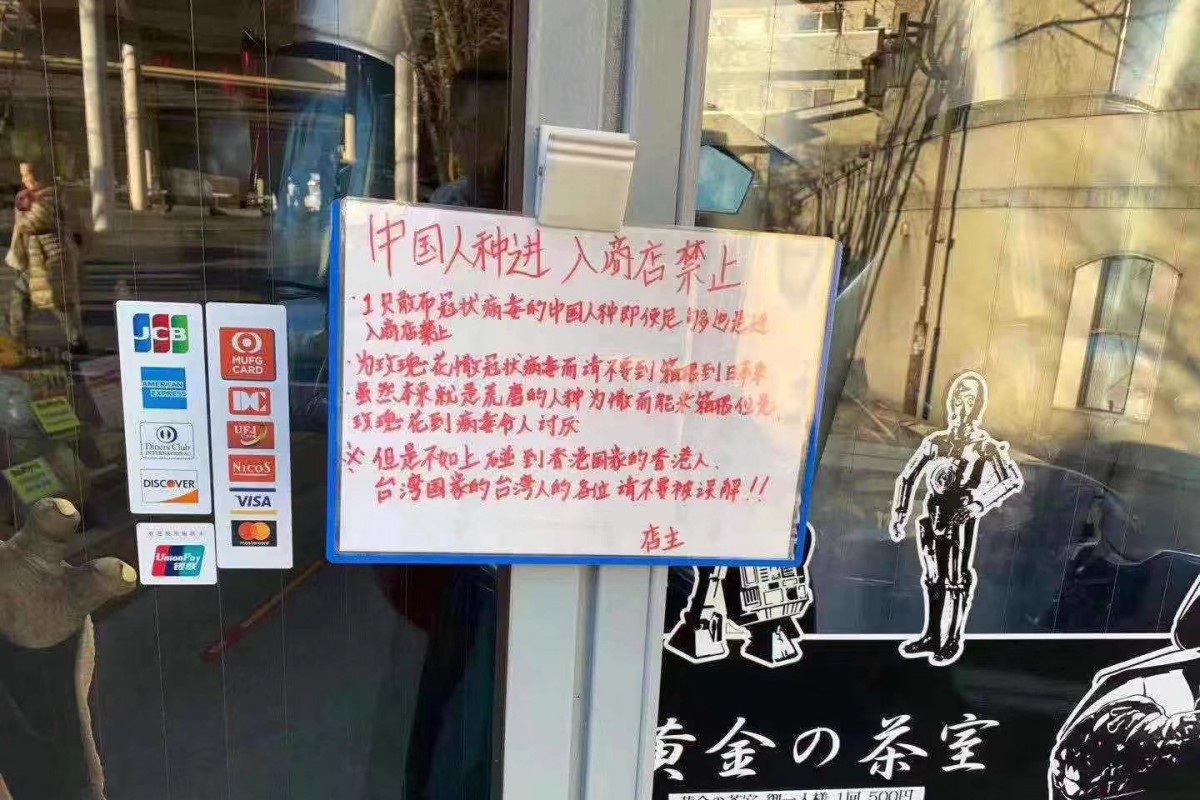 中国人种进入商店禁止
·1只散布冠状病毒的中国人种即便尼够也是进
入商店禁止
·为玫瑰花撒冠状病毒而请不要到箱根到日本来
·虽然本来就是荒磨的人种为撒而能来箱根但是
玫瑰花到病毒令人讨厌
※但是不如上碰到香港国家的香港人、
台湾国家的台湾人的各位请不要被误解!!
店主
JCB
AMERICAN EXPRESS
Diners Club
INTERNATIONAL
DISCOVER
UnionPay
银联
MUFG
CARD
DC
UFJ Card
NICOS
VISA
黄金の茶室
黄金の茶室 御一人様 1回 500円